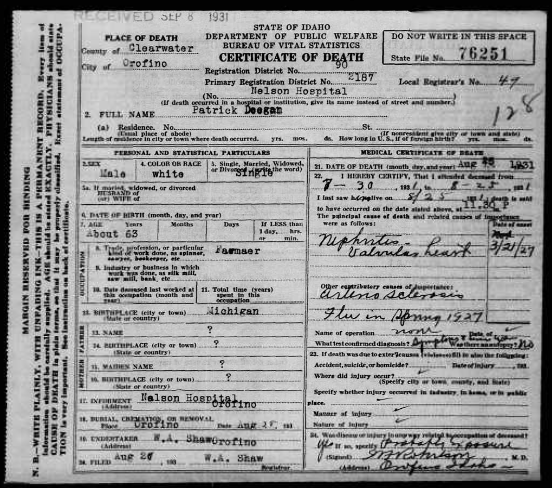 RECEIVED SEP 8 1931
STATE OF IDAHO
DEPARTMENT OF PUBLIC WELFARE
BUREAU OF VITAL STATISTICS
CERTIFICATE OF DEATH
PLACE OF DEATH
County of Clearwater
City of Orofino
DO NOT WRITE IN THIS SPACE
State File No. 76251
Registration District No. 90
Primary Registration District No. 2187
Local Registrar's No. 47
128
(No. Nelson Hospital
(If death occurred in a hospital or institution, give its name instead of street and number.)
2. FULL NAME Patrick Deegan
(a) Residence. No. St.
(Usual place of abode) (If nonresident give city or town and state)
Length of residence in city or town where death occurred. yrs. mos. ds. How long in U. S., if of foreign birth? yrs. mos. ds.
PERSONAL AND STATISTICAL PARTICULARS
2. SEX Male
4. COLOR OR RACE white
5. Single, Married, Widowed, or Divorced Single
5a. If married, widowed, or divorced
HUSBAND of
(or) WIFE of
6. DATE OF BIRTH (month, day, and year)
7. AGE Years Months Days If LESS than 1 day, hrs. or min.
About 63
OCCUPATION
8. Trade, profession, or particular kind of work done, as spinner, sawyer, bookkeeper, etc. Farmaer
9. Industry or business in which work was done, as silk mill, saw mill, bank, etc.
10. Date deceased last worked at this occupation (month and year)
11. Total time (years) spent in this occupation
12. BIRTHPLACE (city or town) Michigan
(State or country)
FATHER
13. NAME ?
14. BIRTHPLACE (city or town) ?
(State or country)
MOTHER
15. MAIDEN NAME ?
16. BIRTHPLACE (city or town) ?
(State or country)
17. INFORMENT Nelson Hospital
(Address) Orofino
18. BURIAL, CREMATION, OR REMOVAL
Place Orofino Date Aug 28, 193
19. UNDERTAKER W.A. Shaw
(Address) Orofino
20. FILED Aug 26, 193 W.A. Shaw
Registrar.
MEDICAL CERTIFICATE OF DEATH
21. DATE OF DEATH (month, day, and year) Aug 25 1931
22. I HEREBY CERTIFY, That I attended deceased from
7-30 1931, to 8-25 1931
I last saw h alive on
to have occurred on the date stated above, at 11:30
The principal cause of death and related causes of importance were as follows:
Date of onset
Nephritis - 3/21/27
Valvular heart
Other contributory causes of importance:
Arterio Sclerosis
Flu in spring 1927
Name of operation none Date of
What test confirmed diagnosis? Was there an autopsy? No
23. If death was due to external causes (violence) fill in also the following:
Accident, suicide, or homicide? Date of injury, 193
Where did injury occur?
(Specify city or town, county, and State)
Specify whether injury occurred in industry, in home, or in public place.
Manner of injury
Nature of injury
24. Was disease or injury in any way related to occupation of deceased?
If so, specify Probably Exposure
(Signed) M. D.
(Address) Orofino Idaho
MARGIN RESERVED FOR BINDING
N. B.—WRITE PLAINLY, WITH UNFADING INK—THIS IS A PERMANENT RECORD. Every item of information should be carefully supplied. AGE should be stated EXACTLY. PHYSICIANS should state CAUSE OF DEATH in plain terms, so that it may be properly classified. Exact statement of OCCUPATION is very important. See instruction on back of certificate.